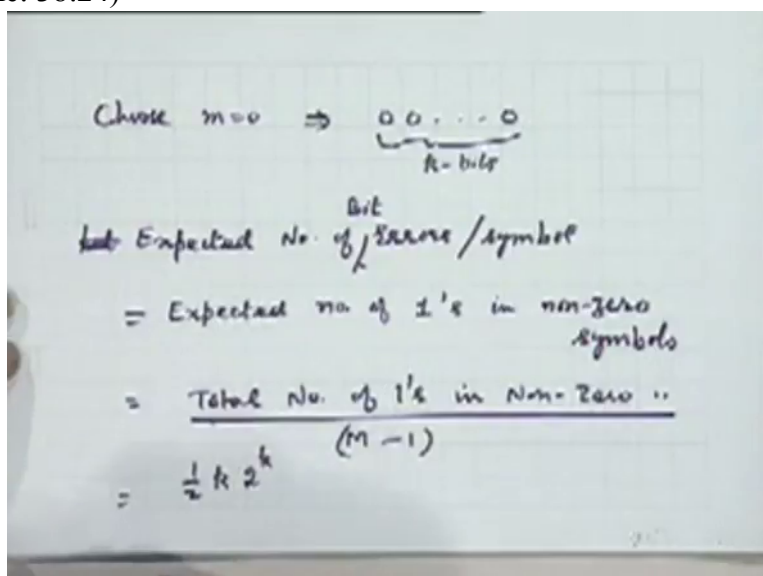 Choose m=0 ⇒ 0 0 . . . 0
k-bits
Bit
Expected No. of Errors / symbol
= Expected no. of 1's in non-zero
symbols
= Total No. of 1's in Non-Zero "
(M-1)
= 1/2 k 2^k